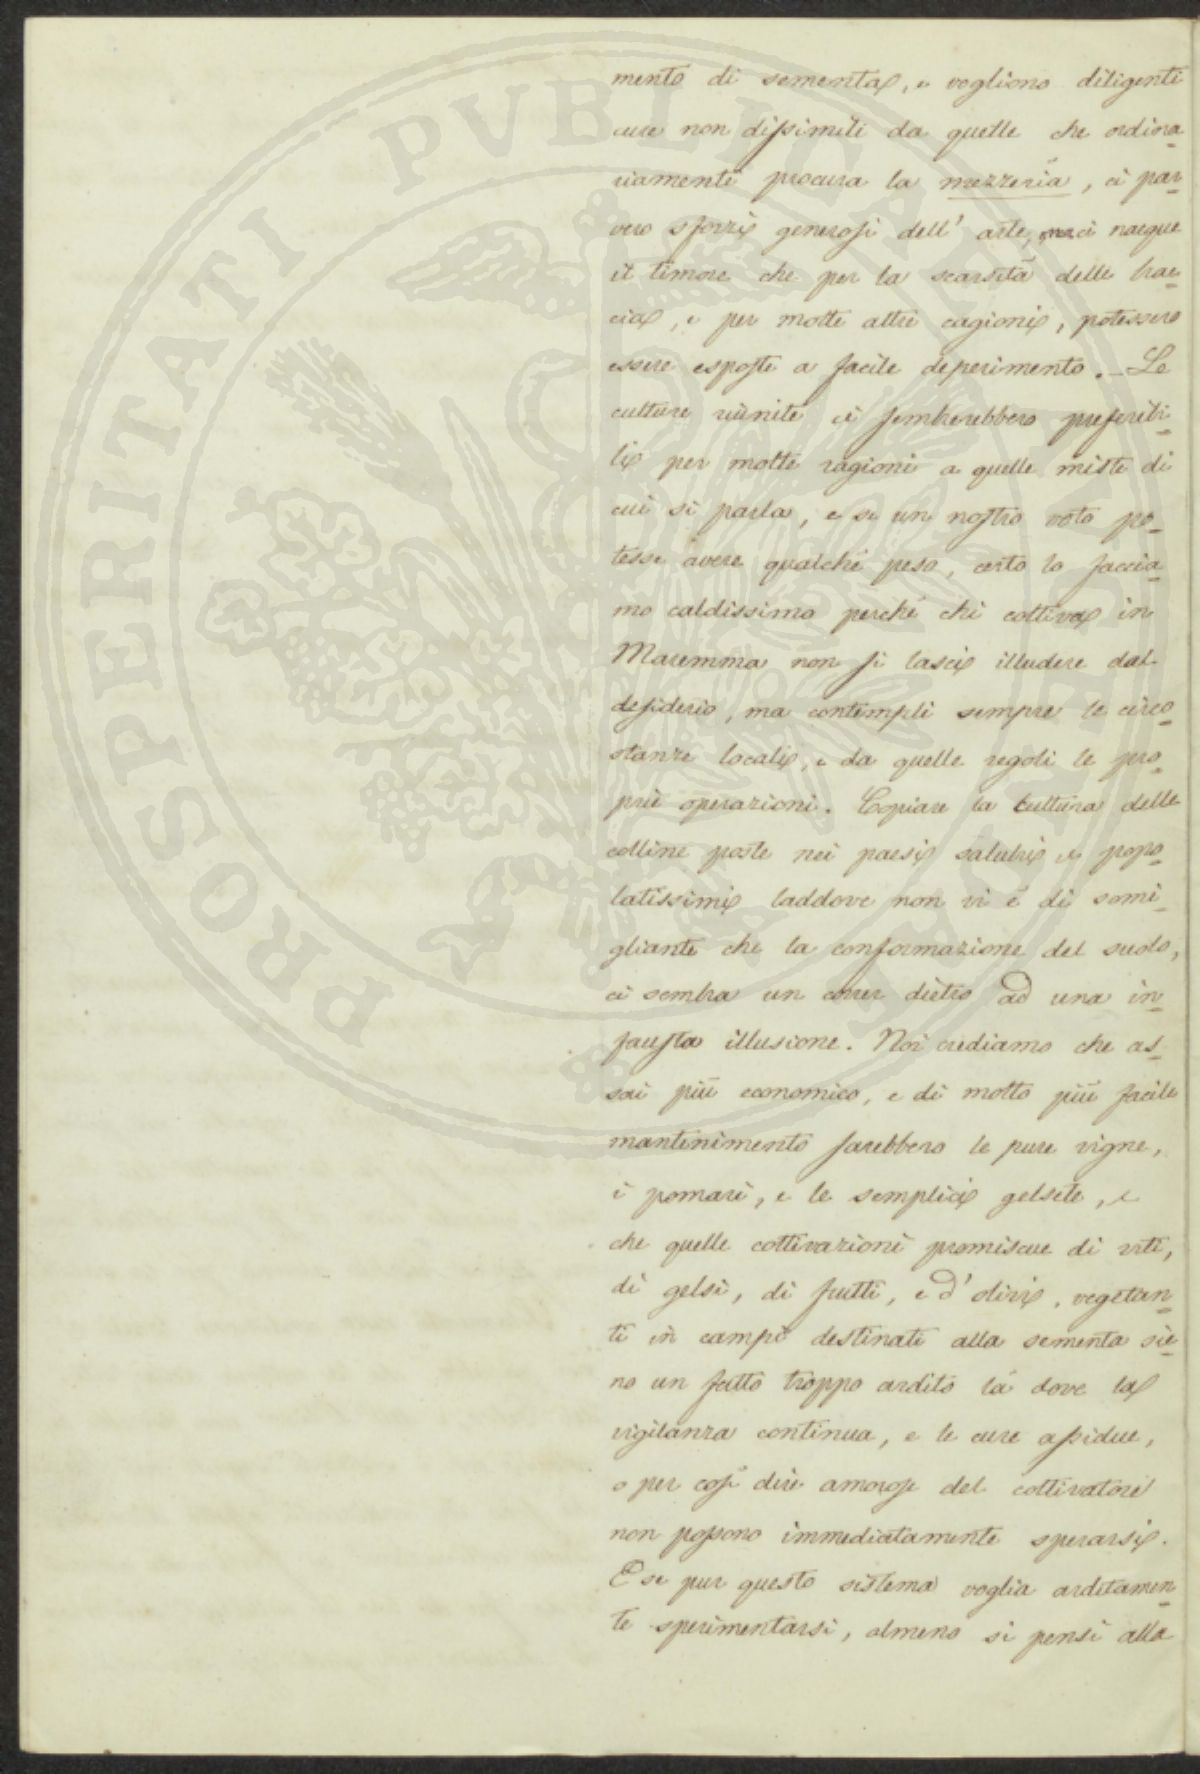 PROSPERITATI PVBLICAE AVGENDAE
mento di sementa, e vogliono diligenti
cure non dissimili da quelle che ordina-
riamente procura la mezzeria, ci par-
vero sforzi generosi dell' arte, ma ci nacque
il timore che per la scarsità delle brac-
cia, e per molte altre cagioni, potessero
essere esposte a facile deperimento. – Le
culture riunite ci sembrerebbero preferibi-
li per molte ragioni a quelle miste di
cui si parla, e se un nostro voto po-
tesse avere qualche peso, certo lo faccia-
mo caldissimo perché chi coltiva in
Maremma non si lasci illudere dal
desiderio, ma contempli sempre le circo-
stanze locali, e da quelle regoli le pro-
prie operazioni. Copiare la cultura delle
colline poste nei paesi salubri e popo-
latissimi laddove non vi è di somi-
gliante che la conformazione del suolo,
ci sembra un correr dietro ad una in-
fausta illusione. Noi crediamo che as-
sai più economico, e di molto più facile
mantinimento sarebbero le pure vigne,
i pomari, e le semplici gelsete, e
che quelle coltivazioni promiscue di viti,
di gelsi, di frutti, e d' olivi, vegetan-
ti in campi destinati alla sementa sie-
no un fatto troppo ardito là dove la
vigilanza continua, e le cure assidue,
o per così dire amorose del coltivatore
non possono immediatamente sperarsi.
E se pur questo sistema voglia arditamen-
te sperimentarsi, almeno si pensi alla